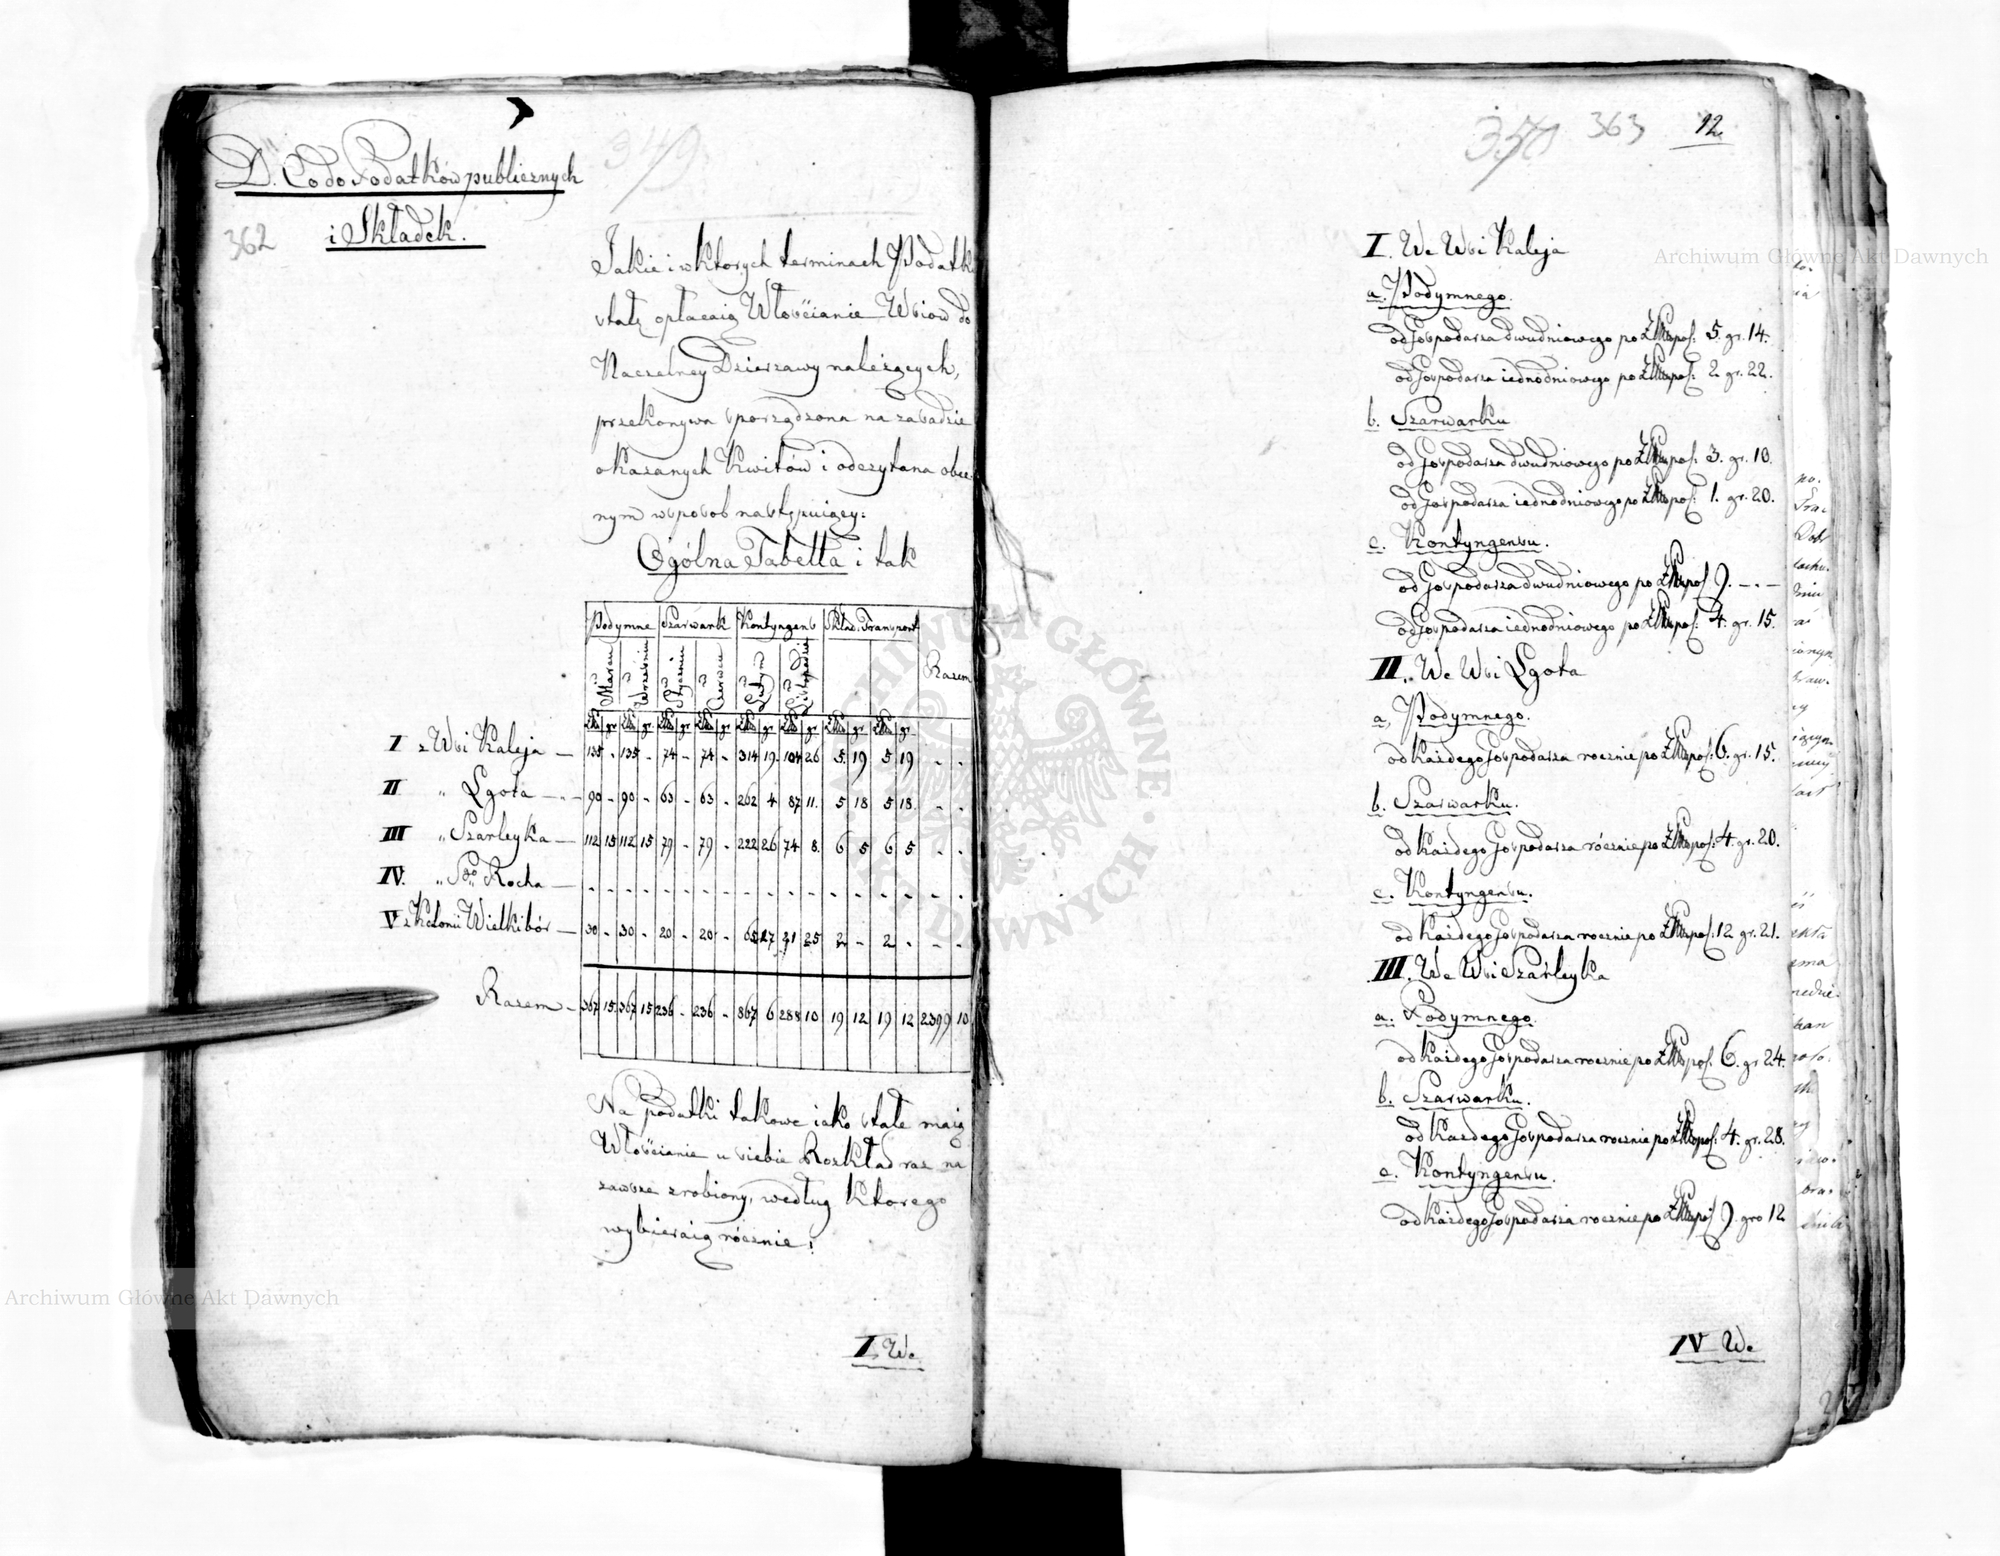 D. Co do Podatków publicznych
i Składek.
349
362
Jakie i w ktorych terminach Podatk
stałe opłacaią Włoscianie Wsiow do
Naczelney Dzierzawy należących,
przekonywa sporządzona na zasadzie
okazanych Kwitów i odczytana obec
nym w sposob następuiący:
Ogólna Tabella i tak
Podymne Szarwark Kontyngens Skład. Transport Razem
w Marcu w Wrześniu w Styczniu w Czerwcu w Lutym w Listopadzie
Złł gr Złł gr Złł gr Złł gr Złł gr Złł gr Złł gr Złł gr
I z Wsi Kaleja — 135 - 135 - 74 - 74 - 314 19 104 26 5 19 5 19 - -
II " Lgota — 90 - 90 - 63 - 63 - 262 4 87 11 5 18 5 18 - -
III " Szarleyka — 112 15 112 15 79 - 79 - 222 26 74 8 6 5 6 5 - -
IV. " Sgo Rocha — - - - - - - - - - - - - - - - - - -
V z Kolonii Wielkibór — 30 - 30 - 20 - 20 - 65 27 21 25 2 - 2 - - -
Razem - 367 15 367 15 236 - 236 - 867 6 288 10 19 12 19 12 2399 10
Na podatki takowe iako stałe maią
Włoscianie u siebie Rozkład raz na
zawsze zrobiony, według ktorego
wybieraią rocznie;
I. We
350 363 12
I. We Wsi Kaleja
a. Podymnego.
od Gospodarza dwudniowego po Złłpol: 5. gr. 14.
od Gospodarza iednodniowego po Złłpol: 2. gr. 22.
b. Szarwarku
od Gospodarza dwudniowego po Złłpol: 3. gr. 10.
od Gospodarza iednodniowego po Złłpol: 1. gr. 20.
c. Kontyngensu.
od Gospodarza dwudniowego po Złłpol 9. — . —
od Gospodarza iednodniowego po Złłpol: 4. gr. 15.
II. We Wsi Lgota
a, Podymnego.
od każdego Gospodarza rocznie po Złłpol: 6. gr. 15.
b. Szarwarku.
od każdego Gospodarza rócznie po Złłpol: 4. gr. 20.
c. Kontyngensu.
od każdego Gospodarza rocznie po Złłpol: 12 gr. 21.
III. We Wsi Szarleyka
a. Podymnego.
od każdego Gospodarza rocznie po Złłpol: 6. gr 24.
b. Szarwarku.
od każdego Gospodarza rocznie po Złłpol: 4. gr. 28.
c. Kontyngensu.
od każdego Gospodarza rocznie po Złłpol 9. gro 12
IV We
Archiwum Główne Akt Dawnych
Archiwum Główne Akt Dawnych
ARCHIWUM GŁÓWNE AKT DAWNYCH